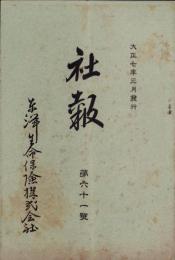 大正七年三月發行
社報
第六十一號
東洋生命保險株式会社